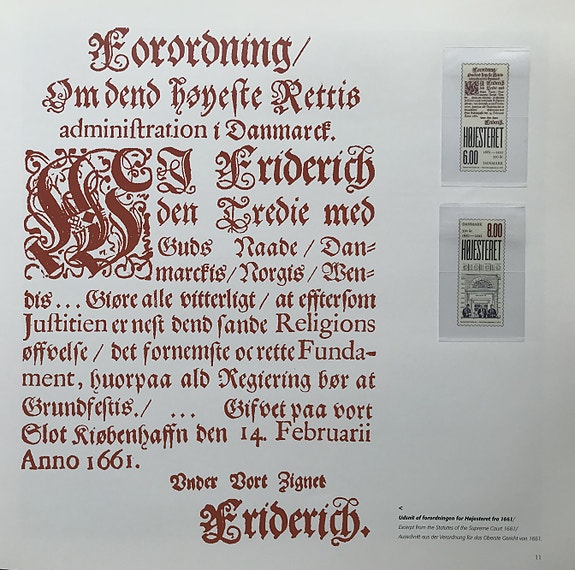 Forordning/
Om dend høyeste Rettis
administration i Danmarck.
WI Friderich
den Tredie med
Guds Naade / Dan-
marckis/ Norgis/ Wen-
dis... Giøre alle vitterligt / at efftersom
Justitien er nest dend sande Religions
øffvelse / det fornemste oc rette Funda-
ment, huorpaa ald Regiering bør at
Grundfestis./ ... Gifvet paa vort
Slot Kiøbenhaffn den 14. Februarii
Anno 1661.
Vnder Vort Zignet
Friderich.
HØJESTERET
6.00
1661-2011
350 år
DANMARK
DANMARK
350 år
1661-2011
8.00
HØJESTERET
<
Udsnit af forordningen for Højesteret fra 1661/
Excerpt from the Statutes of the Supreme Court 1661/
Ausschnitt aus der Verordnung für das Oberste Gericht von 1661.
11